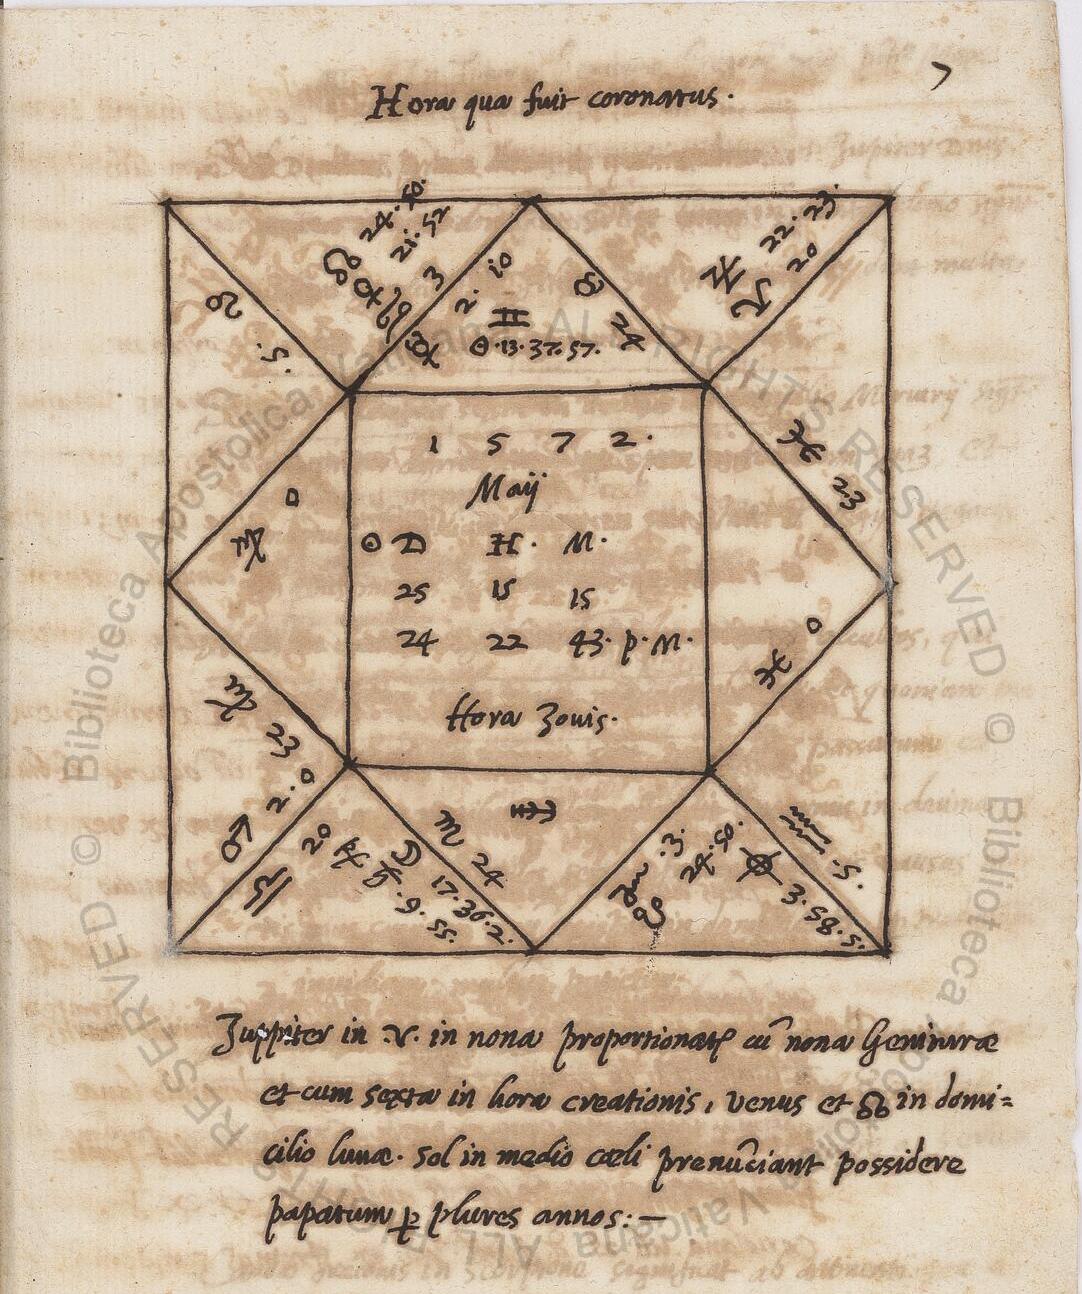 7
Hora qua fuit coronatus.
☊ 24. 50.
♀ 21. 52
♋ 3
☿ 2. 10
♊
☉. 13. 37. 57.
♉ 24
22. 23.
♈ 20
♌
.5.
♓ 23
♍ 0
1 5 7 2.
Maij
☉ D H. M.
25 15 15
24 22 43. p. M.
Hora Iouis.
♓ 0
♍ 23
♂ 2. 0
♎ 20
☽ 17. 36. 2.
.9. 55.
♏ 24
♐
♑ .3.
☋ 24. 50.
♒ .5.
⊕ 3. 58. 5.
Juppiter in ♈. in nona proportionatꝭ cū nona Genituræ
et cum sexta in hora creationis, venus et ☊ in domi=
cilio lunæ. sol in medio cæli prenūciant possidere
papatum ꝑ plures annos: —
© Biblioteca Apostolica Vaticana ALL RIGHTS RESERVED © Biblioteca Apostolica Vaticana ALL RIGHTS RESERVED